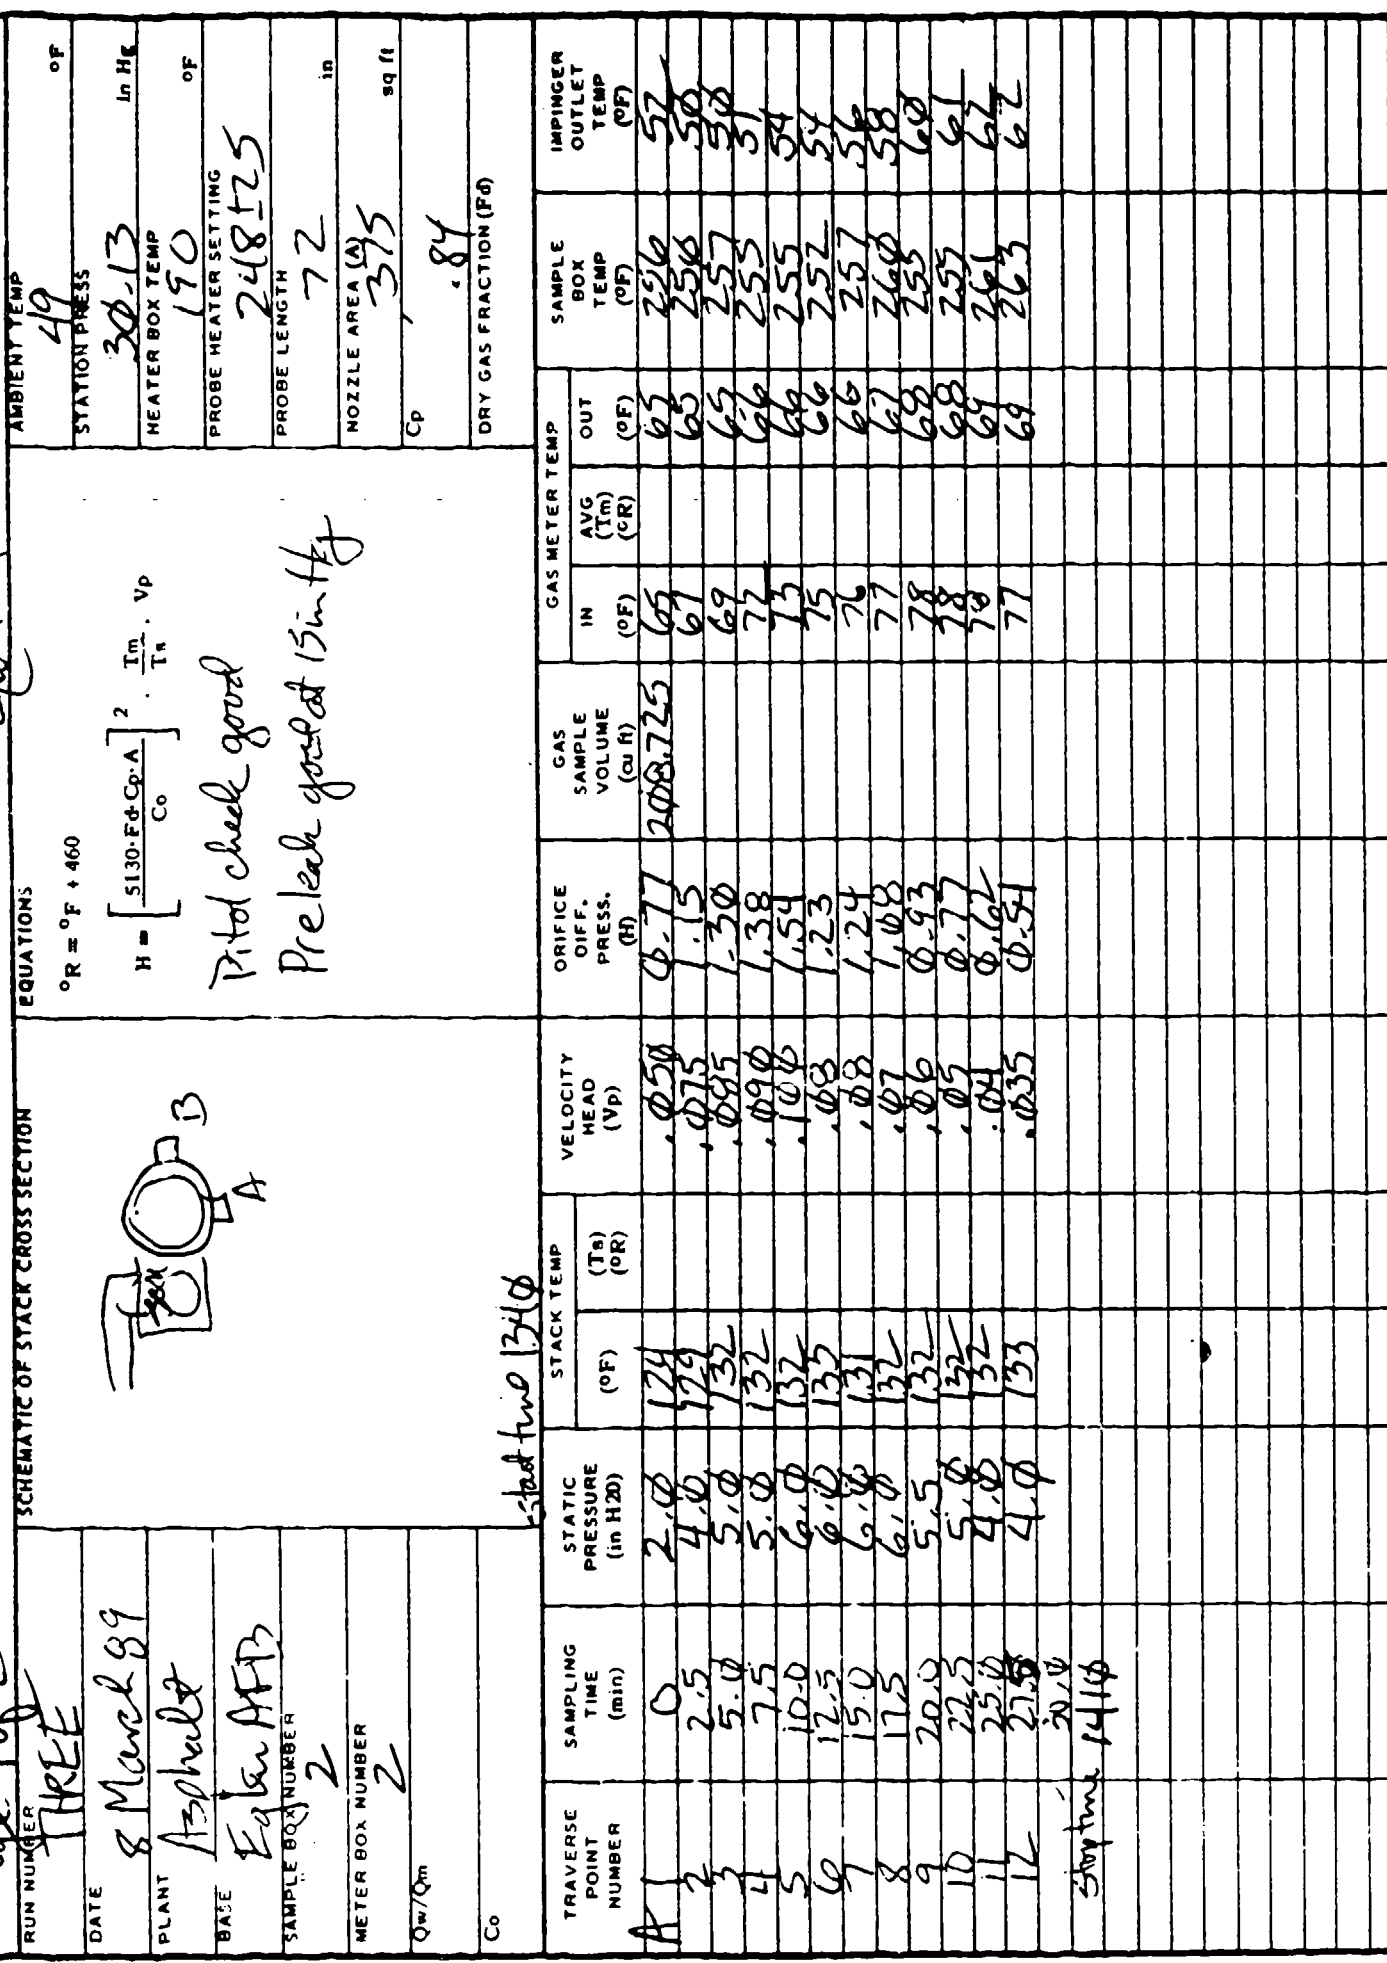 RUN NUMBER
THREE
DATE
8 March 89
PLANT
Asphalt
BASE
Eglin AFB
SAMPLE BOX NUMBER
2
METER BOX NUMBER
2
Qw/Qm
Co
SCHEMATIC OF STACK CROSS SECTION
B
A
start time 1340
EQUATIONS
°R = °F + 460
H = [ 5130·Fd·Cp·A / Co ]² · Tm / Ts · Vp
Pitot check good
Preleak good at 15 in Hg
AMBIENT TEMP
49 °F
STATION PRESS
30.13 in Hg
HEATER BOX TEMP
190 °F
PROBE HEATER SETTING
248±25
PROBE LENGTH
72 in
NOZZLE AREA (A)
.375 sq ft
Cp
.84
DRY GAS FRACTION (Fd)
TRAVERSE POINT NUMBER | SAMPLING TIME (min) | STATIC PRESSURE (in H20) | STACK TEMP (°F) | (Ts) (°R) | VELOCITY HEAD (Vp) | ORIFICE DIFF. PRESS. (H) | GAS SAMPLE VOLUME (cu ft) | GAS METER TEMP IN (°F) | AVG (Tm) (°R) | OUT (°F) | SAMPLE BOX TEMP (°F) | IMPINGER OUTLET TEMP (°F)
A 1 0 2.0 124 .050 0.77 208.725 65 65 256 57
2 2.5 4.0 129 .075 1.15 67 65 256 50
3 5.0 5.0 132 .085 1.30 69 65 257 50
4 7.5 5.0 132 .090 1.38 72 66 255 51
5 10.0 6.0 132 .100 1.54 75 66 255 54
6 12.5 6.0 135 .08 1.23 75 66 252 54
7 15.0 6.0 131 .08 1.24 76 66 257 56
8 17.5 6.0 132 .07 1.08 77 67 260 58
9 20.0 5.5 132 .06 0.93 78 68 255 60
10 22.5 5.0 132 .05 0.77 78 68 257 61
11 25.0 4.0 132 .04 0.62 78 69 261 62
12 27.5 4.0 133 .035 0.54 77 69 263 62
30.0
Stop time 1410